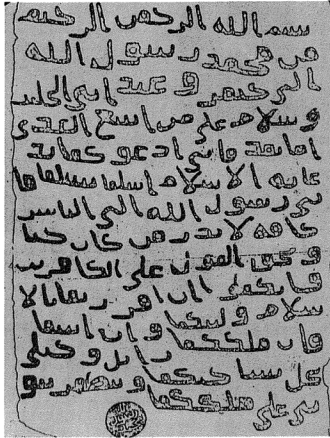 بسم الله الرحمن الرحيم
من محمد رسول الله
الى جيفر و عبد ابنى الجلند
و سلام على من اتبع الهدى
اما بعد فانى ادعوكما بد
عايه الاسلام اسلما تسلما فا
نى رسول الله الى الناس
كافه لانذر من كان حيا
و يحق القول على الكافرين
فانكما ان اقررتما بالا
سلام وليتكما و ان ابيتما
فان ملككما زايل و خيلى
تحل بساحتكما و تظهر نبو
تى على ملككما